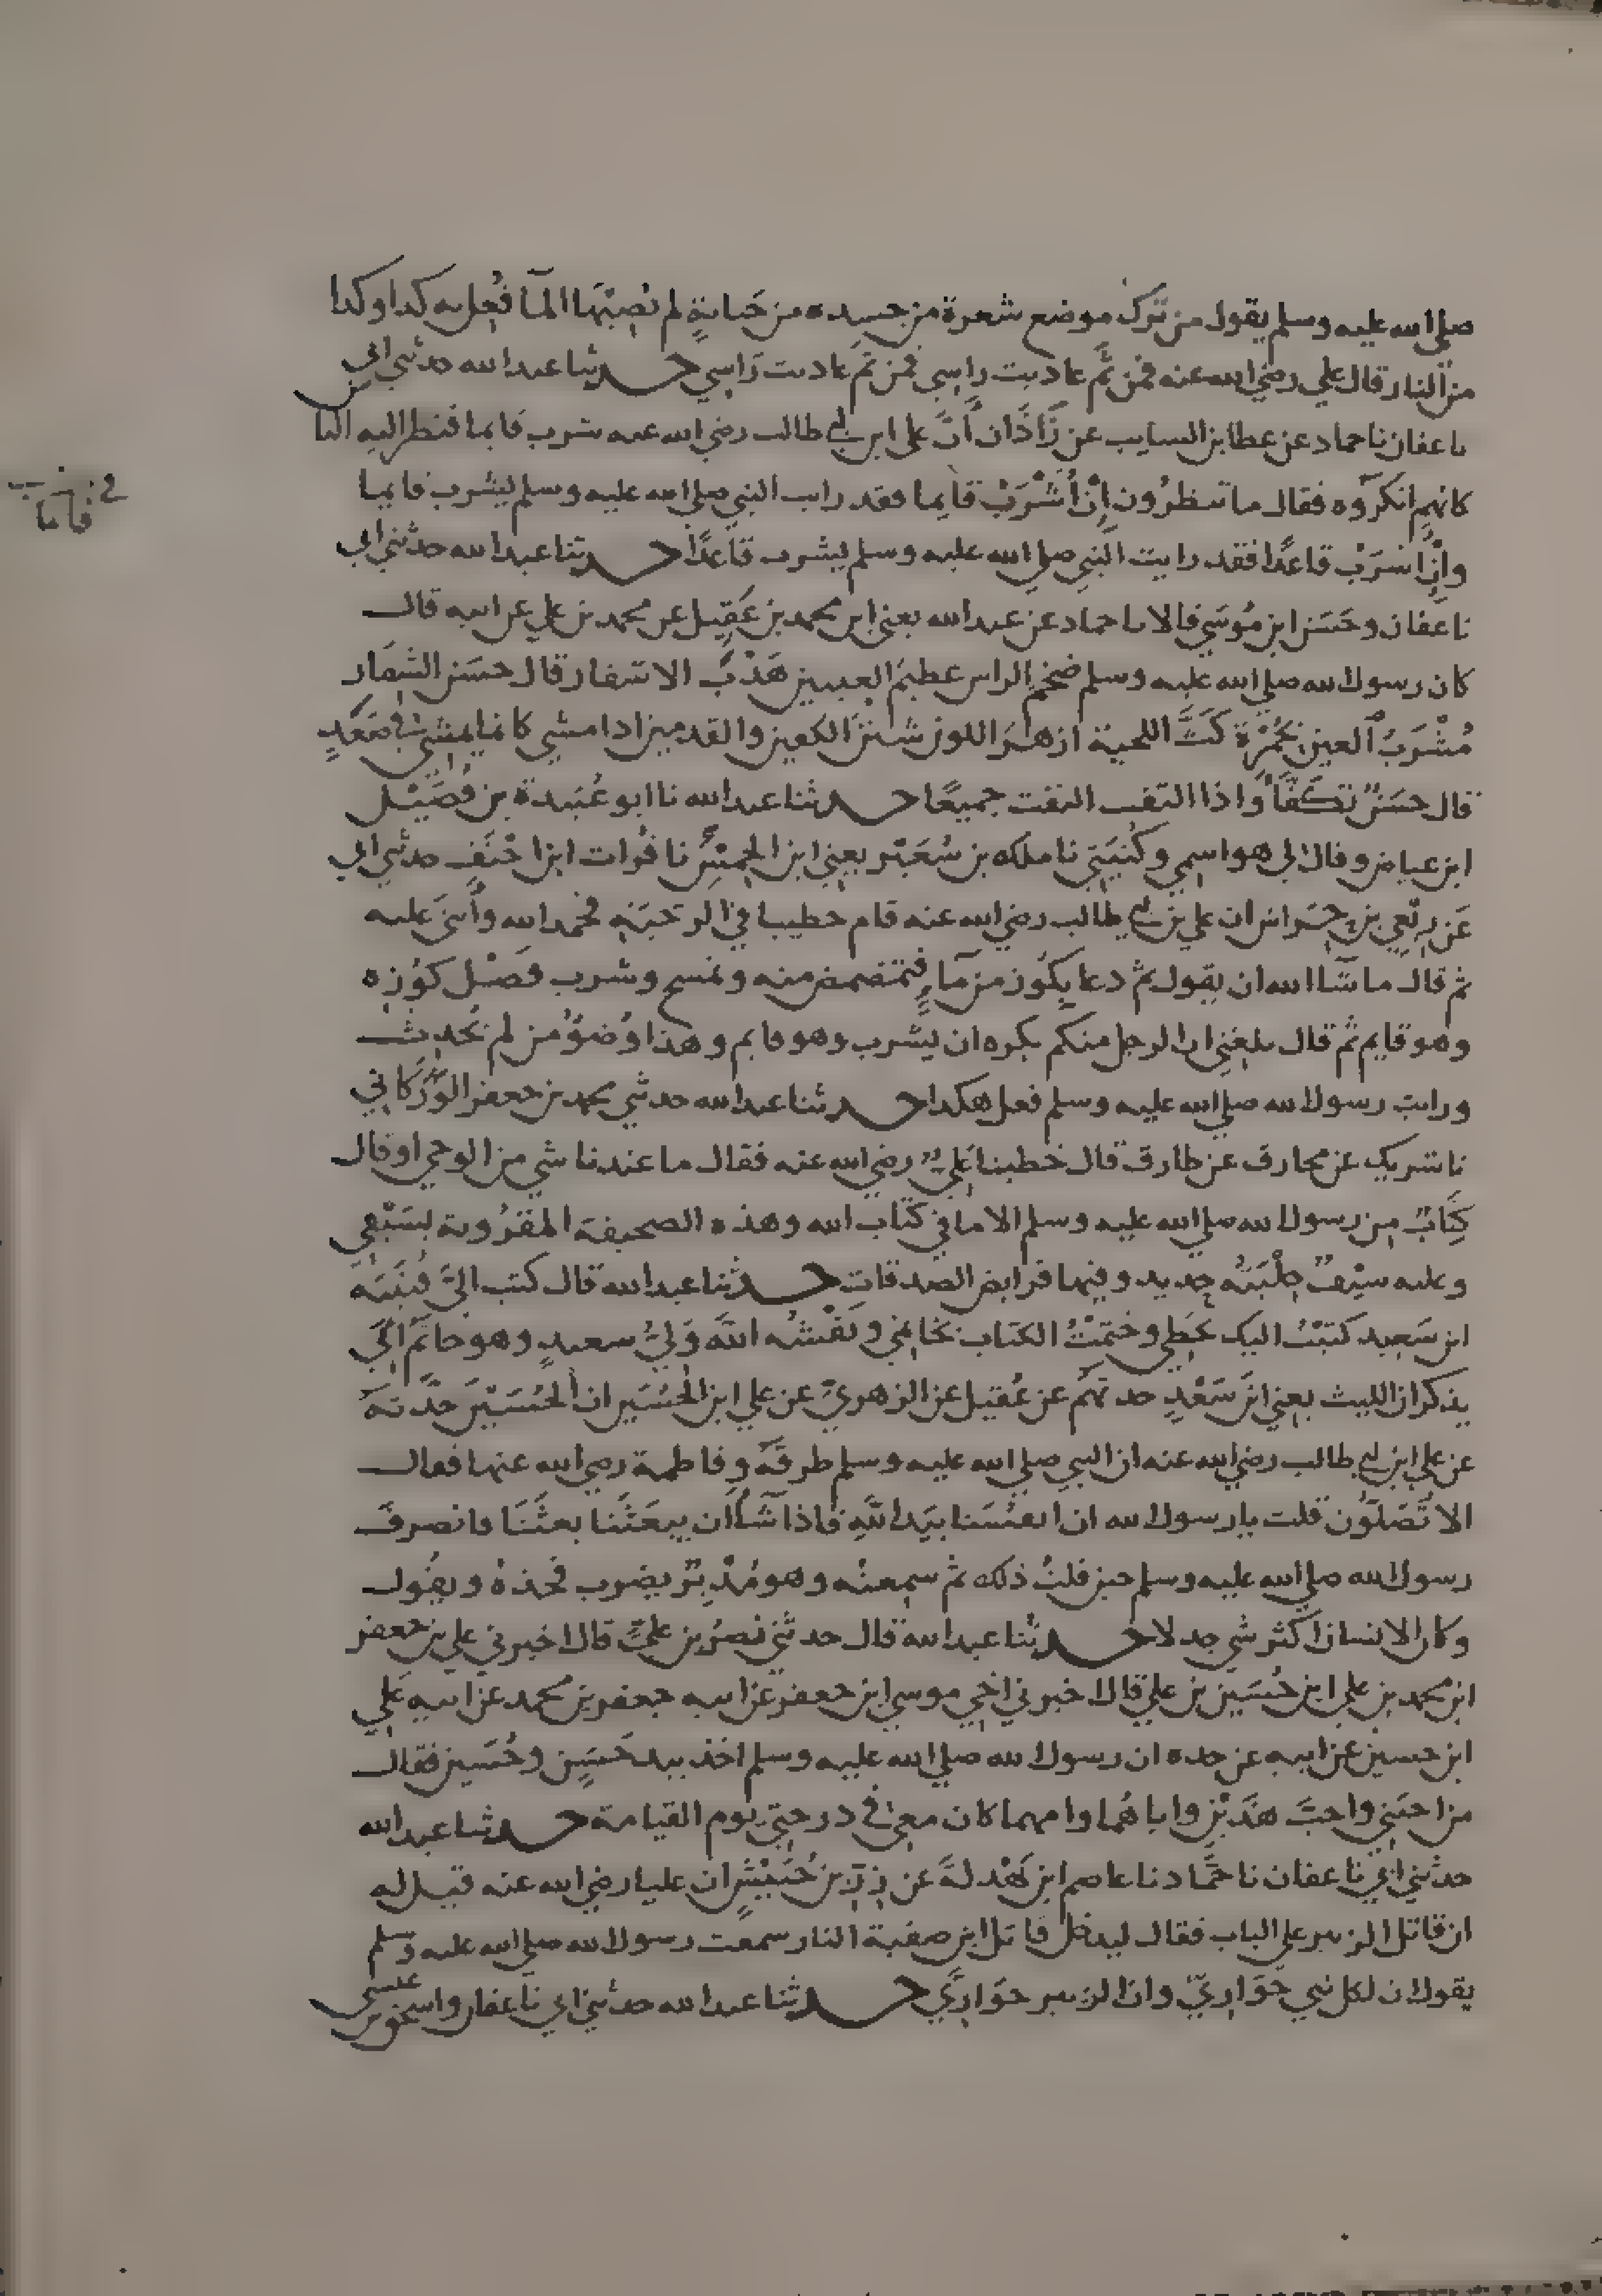 صلي الله عليه وسلم يقول من ترك موضع شعرة من جسده من جنابةٍ لم يُصِبْهَا الماٰ فُعِل به كذا وكذا
من النار قال علي رضي الله عنه فمن ثَمَّ عاديت راسي فمن ثم عاديت رَاسِي حدثنا عبد الله حدثني ابي
نا عفان نا حماد عن عطا بن السايب عن زَاذَان أنَّ علي ابن ابي طالب رضي الله عنه شرب قايما فنظر اليه النا
س
كانهم انكروه فقال ما تنظرُون إِنْ أَشْرَبْ قايما فقد رايت النبي صلي الله عليه وسلم يشرب قايما
وإِنْ اشرَبْ قاعدًا فقد رايت النبي صلي الله عليه وسلم يشرب قاعدًا حدثنا عبد الله حدثني ابي
نا عفان وحَسَن ابن مُوسَي قالا نا حماد عن عبد الله يعني ابن محمد بن عَقِيل عن محمد بن علي عن ابيه قال
كان رسول الله صلي الله عليه وسلم ضخم الراس عظيمَ العينين هَدْبَ الاشفار قال حسَن الشفار
مُشْرَبُ العين بحُمْرَة كَثَّ اللحية ازهرَ اللون شثنَ الكفين والقدمين اذا مشي كانما يمشي في صَعَدٍ
قال حسَنٌ تكفَّأ واذا التفت التفت جميعًا حدثنا عبد الله نا ابو عُبَيدة بن فُضَيْل
ابن عياض وقال لي هو اسمي وكُنيَتِي نا ملك بن سُعَيْر يعني ابن الخِمْسِ نا فُرات ابن احْنَف حدثني ابي
عَن رِبْعي بن حِرَاش ان علي بن ابي طالب رضي الله عنه قام خطيبا في الرحَبَةِ فحمد الله وأثنَى عليه
ثم قال ما شاٰ الله ان يقول ثم دعا بكُوز من مآءٍ فتمضمض منه وتمسح وشرب فَضْل كوُزِه
وهو قايم ثم قال بلغني ان الرجل منكم يكره ان يشرب وهو قايم وهذا وُضوُ من لم يُحدِث
ورايت رسول الله صلي الله عليه وسلم فعل هكذا حدثنا عبد الله حدثني محمد بن جعفر الوَرْكاني
نا شريك عن مخارق عن طارق قال خطبنا عَلِيٌّ رضي الله عنه فقال ما عندنا شي من الوحي او قال
كِتَابٌ من رسول الله صلي الله عليه وسلم الا ما في كتاب الله وهذه الصحيفة المقرُونة بسَيْفِي
وعليه سيْفٌ حِلْيَتُه حديد وفيها فرايض الصدقات حدثنا عبد الله قال كتب اليَّ قُتَيْبَة
ابن سَعِيد كتبْتُ اليك بخطي وختَمْتُ الكتاب بخاتمي ونَقْشُه اللَّه وَليُّ سعيدٍ وهو خاتَمُ ابي
يذكر ان الليث يعني ابن سَعْدٍ حدثهم عن عُقيل عن الزهريِّ عن علي ابن الحُسَين ان الحُسَيْن حدَّثه
عن علي ابن ابي طالب رضي الله عنه ان النبي صلي الله عليه وسلم طرقَهُ وفاطمة رضي الله عنها فقال
الا تُصَلُّون قلت يا رسول الله ان انفسَنا بيَد اللَّهِ فاذا شآأن يبعَثَنا بعثَنَا فانصرف
رسول الله صلي الله عليه وسلم حين قلتُ ذلك ثم سمعته وهو مُدْبِرٌ يضرب فخذهُ ويقُول
وكان الانسان اكثر شي جدلا حدثنا عبد الله قال حدثني نصرُ بن عليٍّ قال اخبرني علي بن جعفر
ابن محمد بن علي ابن حُسَين بن علي قال اخبرني اخي موسي ابن جعفر عن ابيه جعفر بن محمد عن ابيه عَلي
ابن حسين عن ابيه عن جده ان رسول الله صلي الله عليه وسلم اخذ بيد حَسَنٍ وحُسَين فقال
من احبَني واحبَّ هذَيْن واباهُما وامهما كان معي في درجتي يوم القيامة حدثنا عبد الله
حدثني ابي نا عفان نا حمَّاد نا عاصم ابن بَهْدلةَ عن زِرِّ بن حُبَيْشٍ ان عليا رضي الله عنه قيل له
ان قاتل الزبير علي الباب فقال ليدخل قاتل ابن صفية النار سمعت رسول الله صلي الله عليه وسلم
يقول ان لكل نبي حَوَاريّ وان الزبير حوَاريِّ حدثنا عبد الله حدثني ابي نا عفان واسحق بن
عيسي